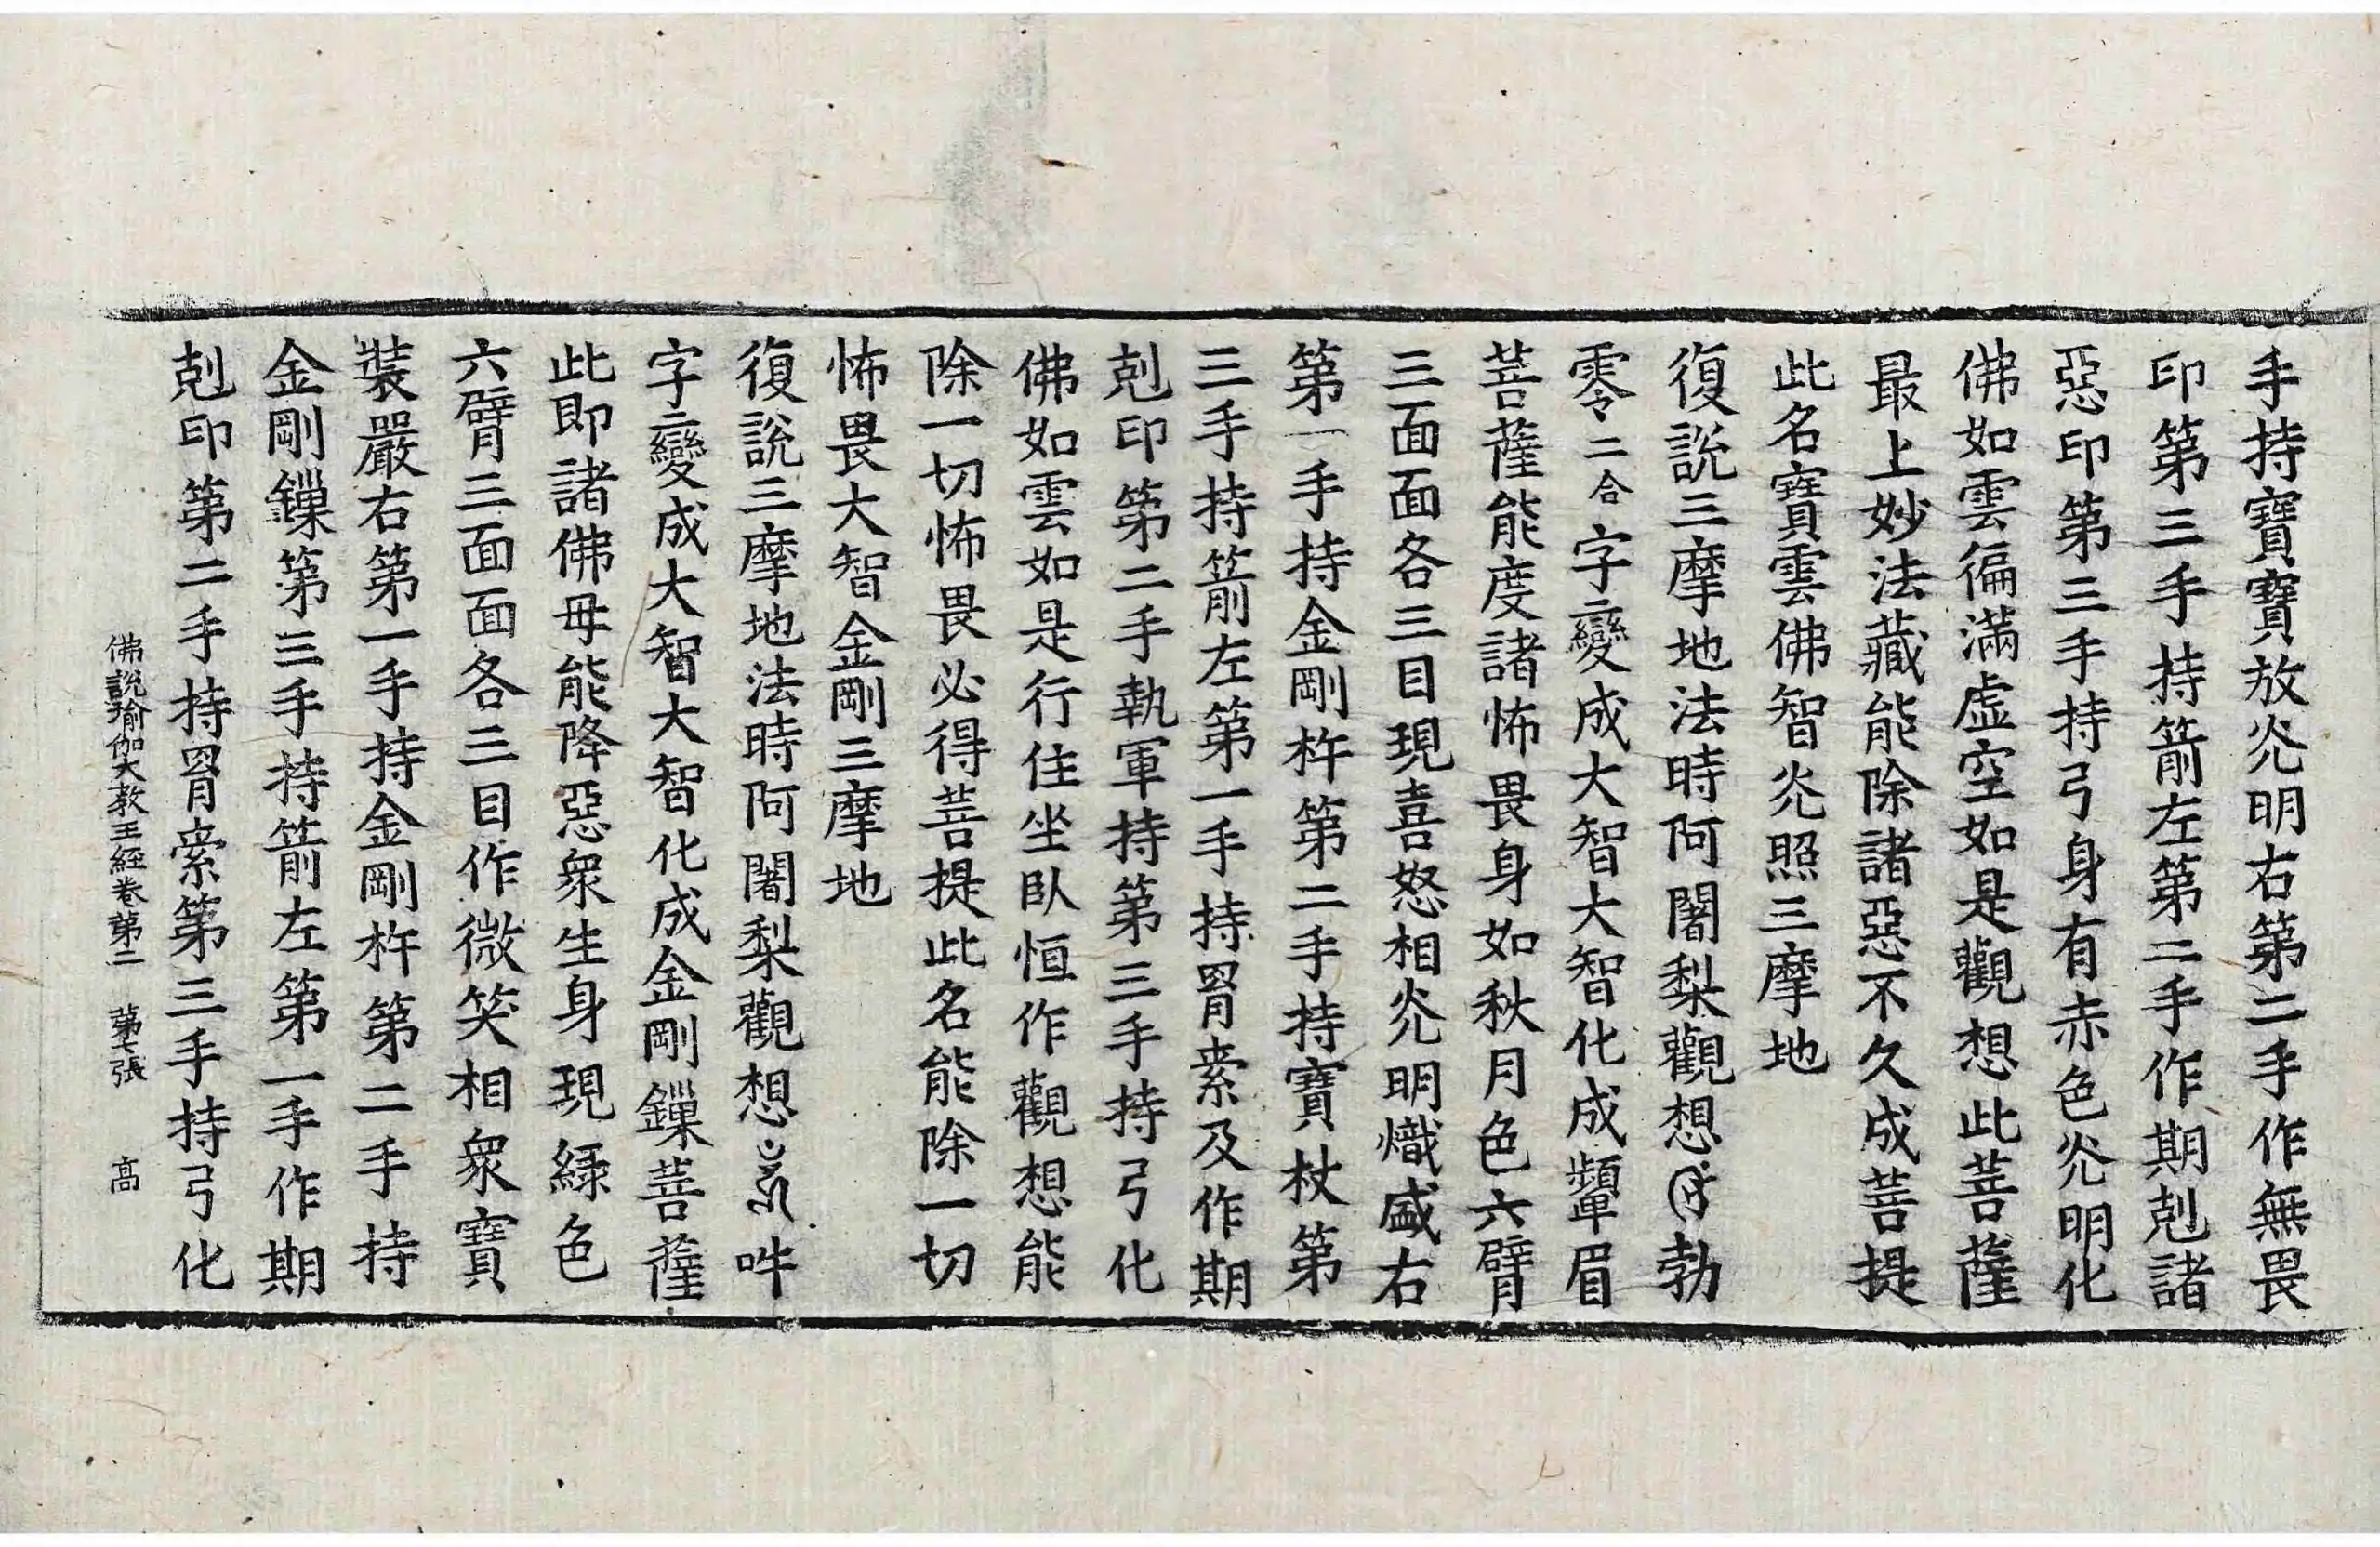 手持寶寶放光明右第二手作無畏
印第三手持箭左第二手作期剋諸
惡印第三手持弓身有赤色光明化
佛如雲徧滿虛空如是觀想此菩薩
最上妙法藏能除諸惡不久成菩提
此名寶雲佛智光照三摩地
復說三摩地法時阿闍梨觀想勃
零二合字變成大智大智化成顰眉
菩薩能度諸怖畏身如秋月色六臂
三面面各三目現喜怒相光明熾盛右
第一手持金剛杵第二手持寶杖第
三手持箭左第一手持罥索及作期
剋印第二手執軍持第三手持弓化
佛如雲如是行住坐臥恒作觀想能
除一切怖畏必得菩提此名能除一切
怖畏大智金剛三摩地
復說三摩地法時阿闍梨觀想吽
字變成大智大智化成金剛鏁菩薩
此即諸佛母能降惡衆生身現綠色
六臂三面面各三目作微笑相衆寶
裝嚴右第一手持金剛杵第二手持
金剛鏁第三手持箭左第一手作期
剋印第二手持罥索第三手持弓化
佛說瑜伽大教王經卷第二 第七張 高